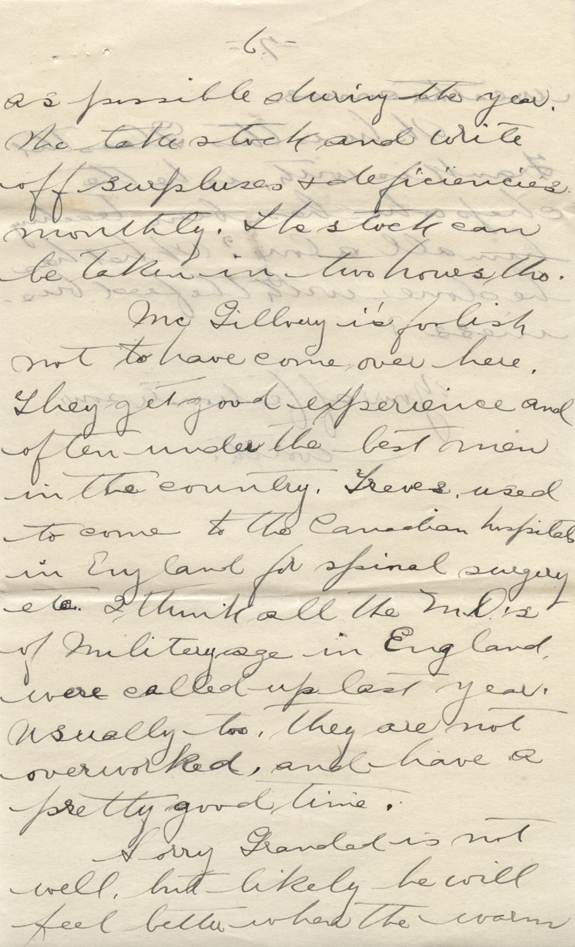 -6-
as possible during the year.
We take stock and write
off surpluses & deficiencies
monthly. The stock can
be taken in two hours, tho.
Mc Gillvery is foolish
not to have come over here.
They get good experience and
often under the best men
in the country. Treves, used
to come to the Canadian hospitals
in England for spinal surgery
etc. I think all the M.D.'s
of Military age in England,
were called up last year.
Usually too, they are not
overworked, and have a
pretty good time.
Sorry Grandad is not
well, but likely he will
feel better when the warm